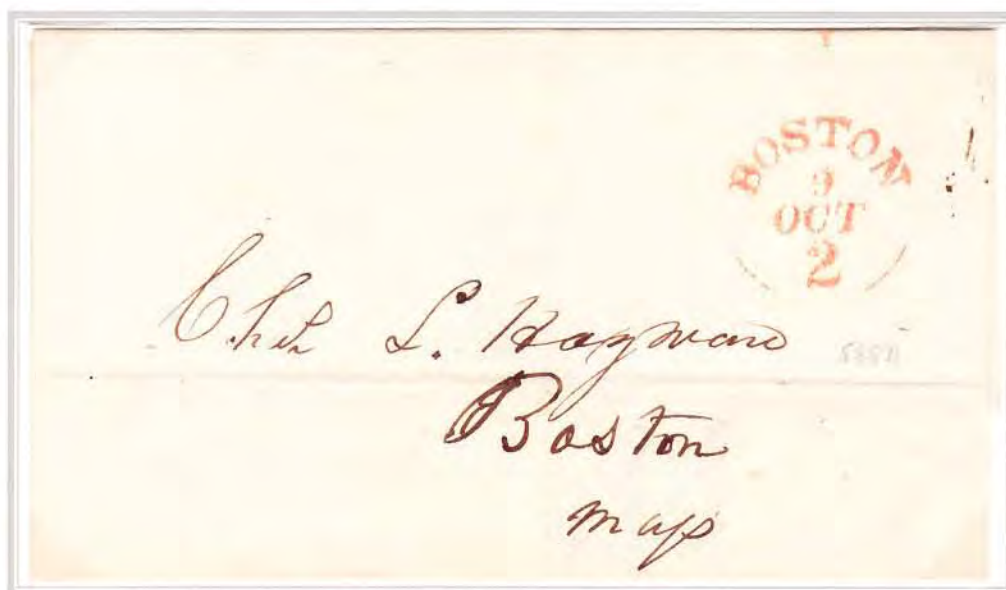 BOSTON
9
OCT
2
L. Hayward
Boston
Mass